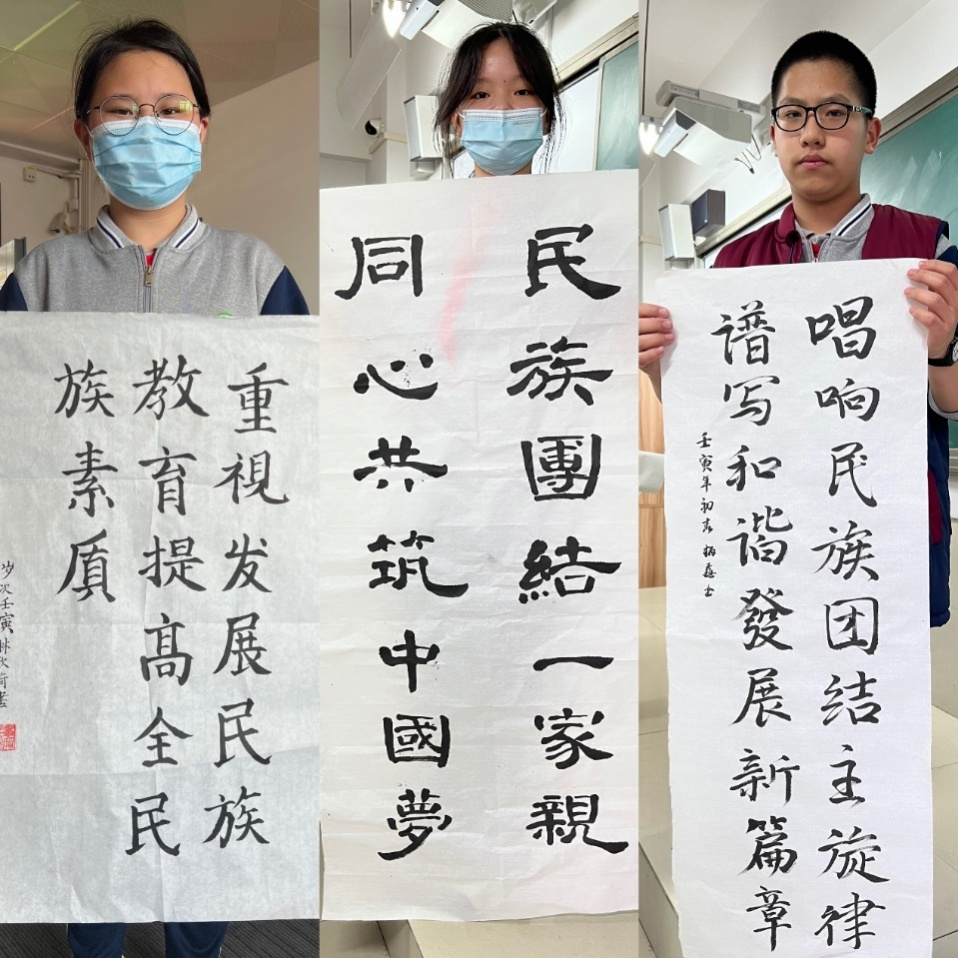 重視发展民族
教育提髙全民
族素质
岁次壬寅
民族團結一家親
同心共筑中國夢
唱响民族团结主旋律
谱写和谐發展新篇章
壬寅年初